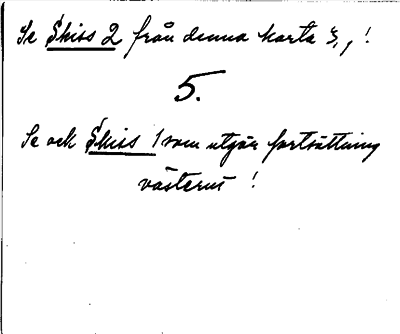 Se Skiss 2 från denna karta 5, !
5.
Se och Skiss 1 som utgör fortsättning
västerut !